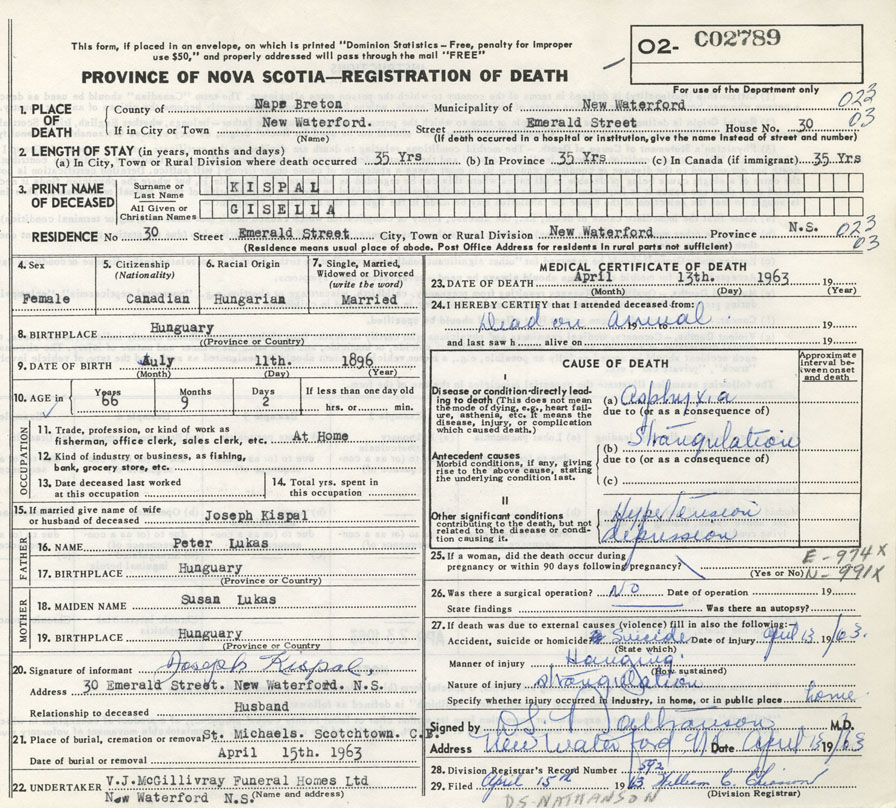 This form, if placed in an envelope, on which is printed "Dominion Statistics – Free, penalty for improper
use $50," and properly addressed will pass through the mail "FREE"
O2- C02789
PROVINCE OF NOVA SCOTIA—REGISTRATION OF DEATH
For use of the Department only
023
03
1. PLACE OF DEATH
County of Nape Breton Municipality of New Waterford
If in City or Town New Waterford. Street Emerald Street House No. 30
(Name) (If death occurred in a hospital or institution, give the name instead of street and number)
2. LENGTH OF STAY (in years, months and days)
(a) In City, Town or Rural Division where death occurred 35 Yrs (b) In Province 35 Yrs (c) In Canada (if immigrant) 35 Yrs
3. PRINT NAME OF DECEASED
Surname or Last Name KISPAL
All Given or Christian Names GISELLA
RESIDENCE No 30 Street Emerald Street City, Town or Rural Division New Waterford Province N.S. 023
03
(Residence means usual place of abode. Post Office Address for residents in rural parts not sufficient)
4. Sex
Female
5. Citizenship
(Nationality)
Canadian
6. Racial Origin
Hungarian
7. Single, Married,
Widowed or Divorced
(write the word)
Married
8. BIRTHPLACE Hunguary
(Province or Country)
9. DATE OF BIRTH July 11th. 1896
(Month) (Day) (Year)
10. AGE in
Years 66
Months 9
Days 2
If less than one day old
hrs. or min.
OCCUPATION
11. Trade, profession, or kind of work as
fisherman, office clerk, sales clerk, etc. At Home
12. Kind of industry or business, as fishing,
bank, grocery store, etc.
13. Date deceased last worked
at this occupation
14. Total yrs. spent in
this occupation
15. If married give name of wife
or husband of deceased Joseph Kispal
FATHER
16. NAME Peter Lukas
17. BIRTHPLACE Hunguary
(Province or Country)
MOTHER
18. MAIDEN NAME Susan Lukas
19. BIRTHPLACE Hunguary
(Province or Country
20. Signature of informant Joseph Kispal,
Address 30 Emerald Street. New Waterford. N.S.
Relationship to deceased Husband
21. Place of burial, cremation or removal St. Michaels. Scotchtown. C.B.
Date of burial April 15th. 1963
22. UNDERTAKER V.J.McGillivray Funeral Homes Ltd
New Waterford N.S. (Name and address)
MEDICAL CERTIFICATE OF DEATH
23. DATE OF DEATH April 13th. 1963 19
(Month) (Day) (Year)
24. I HEREBY CERTIFY that I attended deceased from:
Dead on arrival.
19 to 19
and last saw h alive on 19
CAUSE OF DEATH
Approximate
interval be-
tween onset
and death
I
Disease or condition directly lead-
ing to death (This does not mean
the mode of dying, e.g., heart fail-
ure, asthenia, etc. It means the
disease, injury, or complication
which caused death.)
(a) Asphyxia
due to (or as a consequence of)
Antecedent causes
Morbid conditions, if any, giving
rise to the above cause, stating
the underlying condition last.
(b) Strangulation
due to (or as a consequence of)
(c)
II
Other significant conditions
contributing to the death, but not
related to the disease or condi-
tion causing it.
Hypertension
depression
25. If a woman, did the death occur during
pregnancy or within 90 days following pregnancy?
(Yes or No)
E-974X
N-991X
26. Was there a surgical operation? NO Date of operation 19
State findings Was there an autopsy?
27. If death was due to external causes (violence) fill in also the following:
Accident, suicide or homicide? Suicide Date of injury April 13 19/63.
(State which)
Manner of injury Hanging.
(How sustained)
Nature of injury strangulation
Specify whether injury occurred in industry, in home, or in public place home
Signed by M.D.
Address New Waterford NS Date April 15 19/63
28. Division Registrar's Record Number 592
29. Filed April 15th 1963 William C. Chiasson
(Division Registrar)
DS-NATHANSON